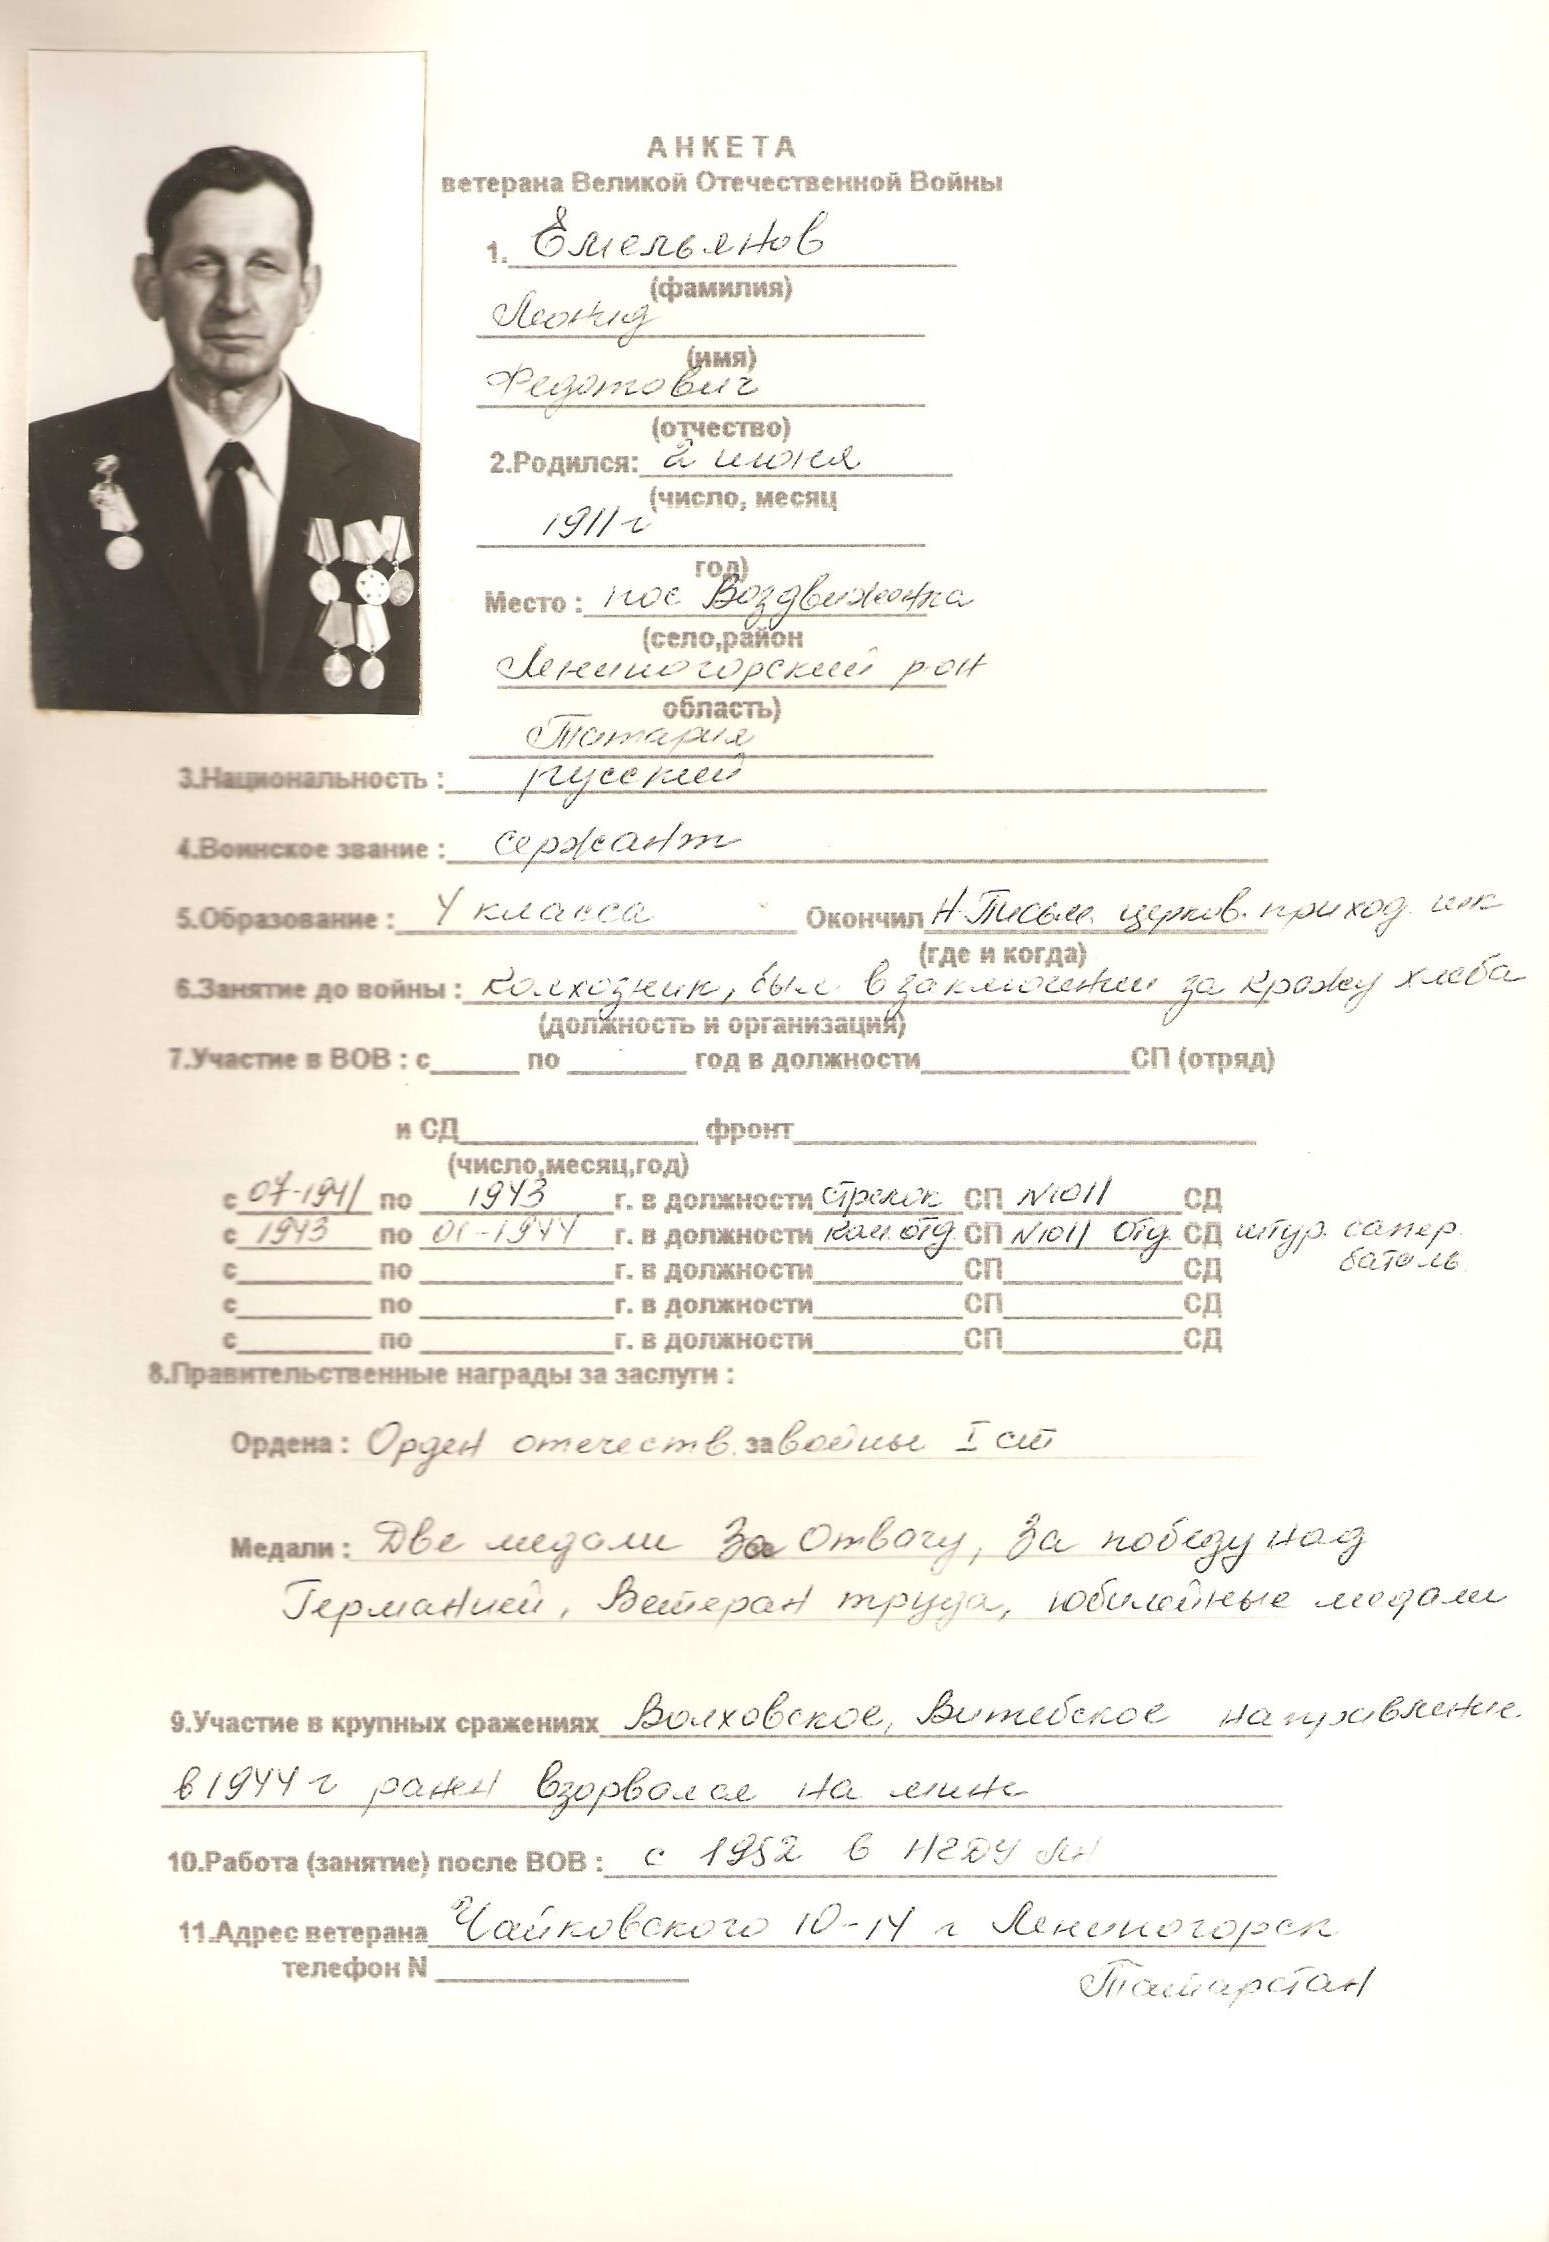 АНКЕТА
ветерана Великой Отечественной Войны
1. Емельянов
(фамилия)
Леонид
(имя)
Федотович
(отчество)
2.Родился: 2 июня
(число, месяц
1911 г
год)
Место : пос Воздвиженка
(село,район
Лениногорский р-он
область)
Татария
3.Национальность : русский
4.Воинское звание : сержант
5.Образование : 4 класса Окончил Н-Письм. церков. приход. шк
(где и когда)
6.Занятие до войны : колхозник, был в заключении за кражу хлеба
(должность и организация)
7.Участие в ВОВ : с______ по ________ год в должности______________СП (отряд)
и СД________________ фронт_______________________________
(число,месяц,год)
с 07-1941 по 1943 г. в должности стрелок СП №1011 СД
с 1943 по 01-1944 г. в должности ком.отд. СП №1011 Отд. СД штур. сапер.
батал
с_________ по _____________г. в должности__________СП____________СД
с_________ по _____________г. в должности__________СП____________СД
с_________ по _____________г. в должности__________СП____________СД
8.Правительственные награды за заслуги :
Ордена : Орден отечеств. за войны I ст
Медали : Две медали За Отвагу, За победу над
Германией, Ветеран труда, юбилейные медали
9.Участие в крупных сражениях Волховское, Витебское направление
в 1944 г ранен взорвался на мине
10.Работа (занятие) после ВОВ : с 1952 в НГДУ ЛН
11.Адрес ветерана Чайковского 10-14 г Лениногорск
телефон N _________________
Татарстан